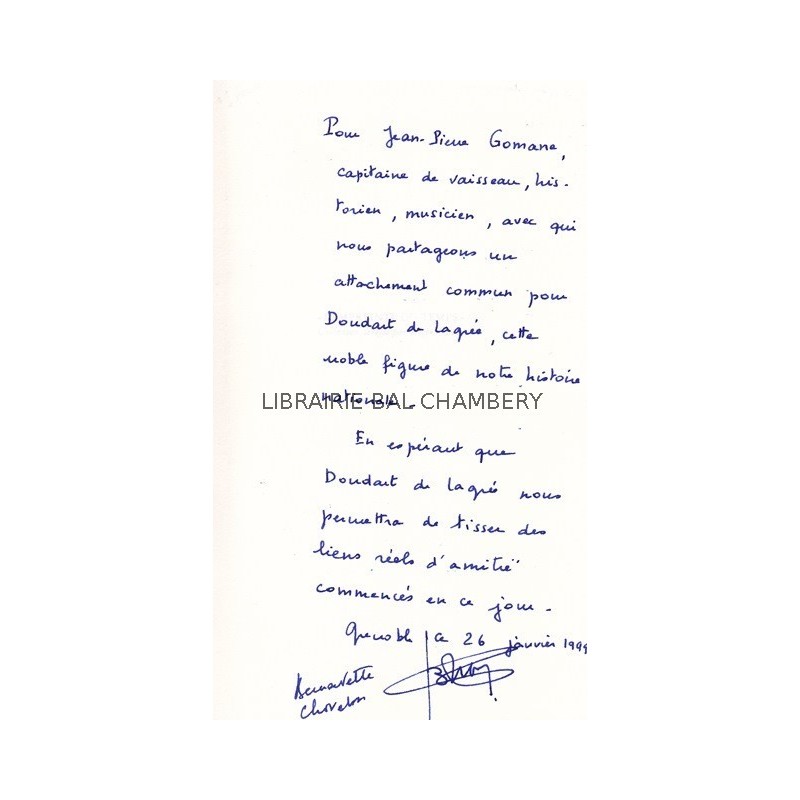 Pour Jean-Pierre Gomane,
capitaine de vaisseau, his-
torien, musicien, avec qui
nous partageons un
attachement commun pour
Doudart de Lagrée, cette
noble figure de notre histoire
nationale.
LIBRAIRIE BAL CHAMBERY
En espérant que
Doudart de Lagrée nous
permettra de tisser des
liens réels d'amitié
commencés en ce jour.
Grenoble ce 26 janvier 199
Bernadette
Chovelon